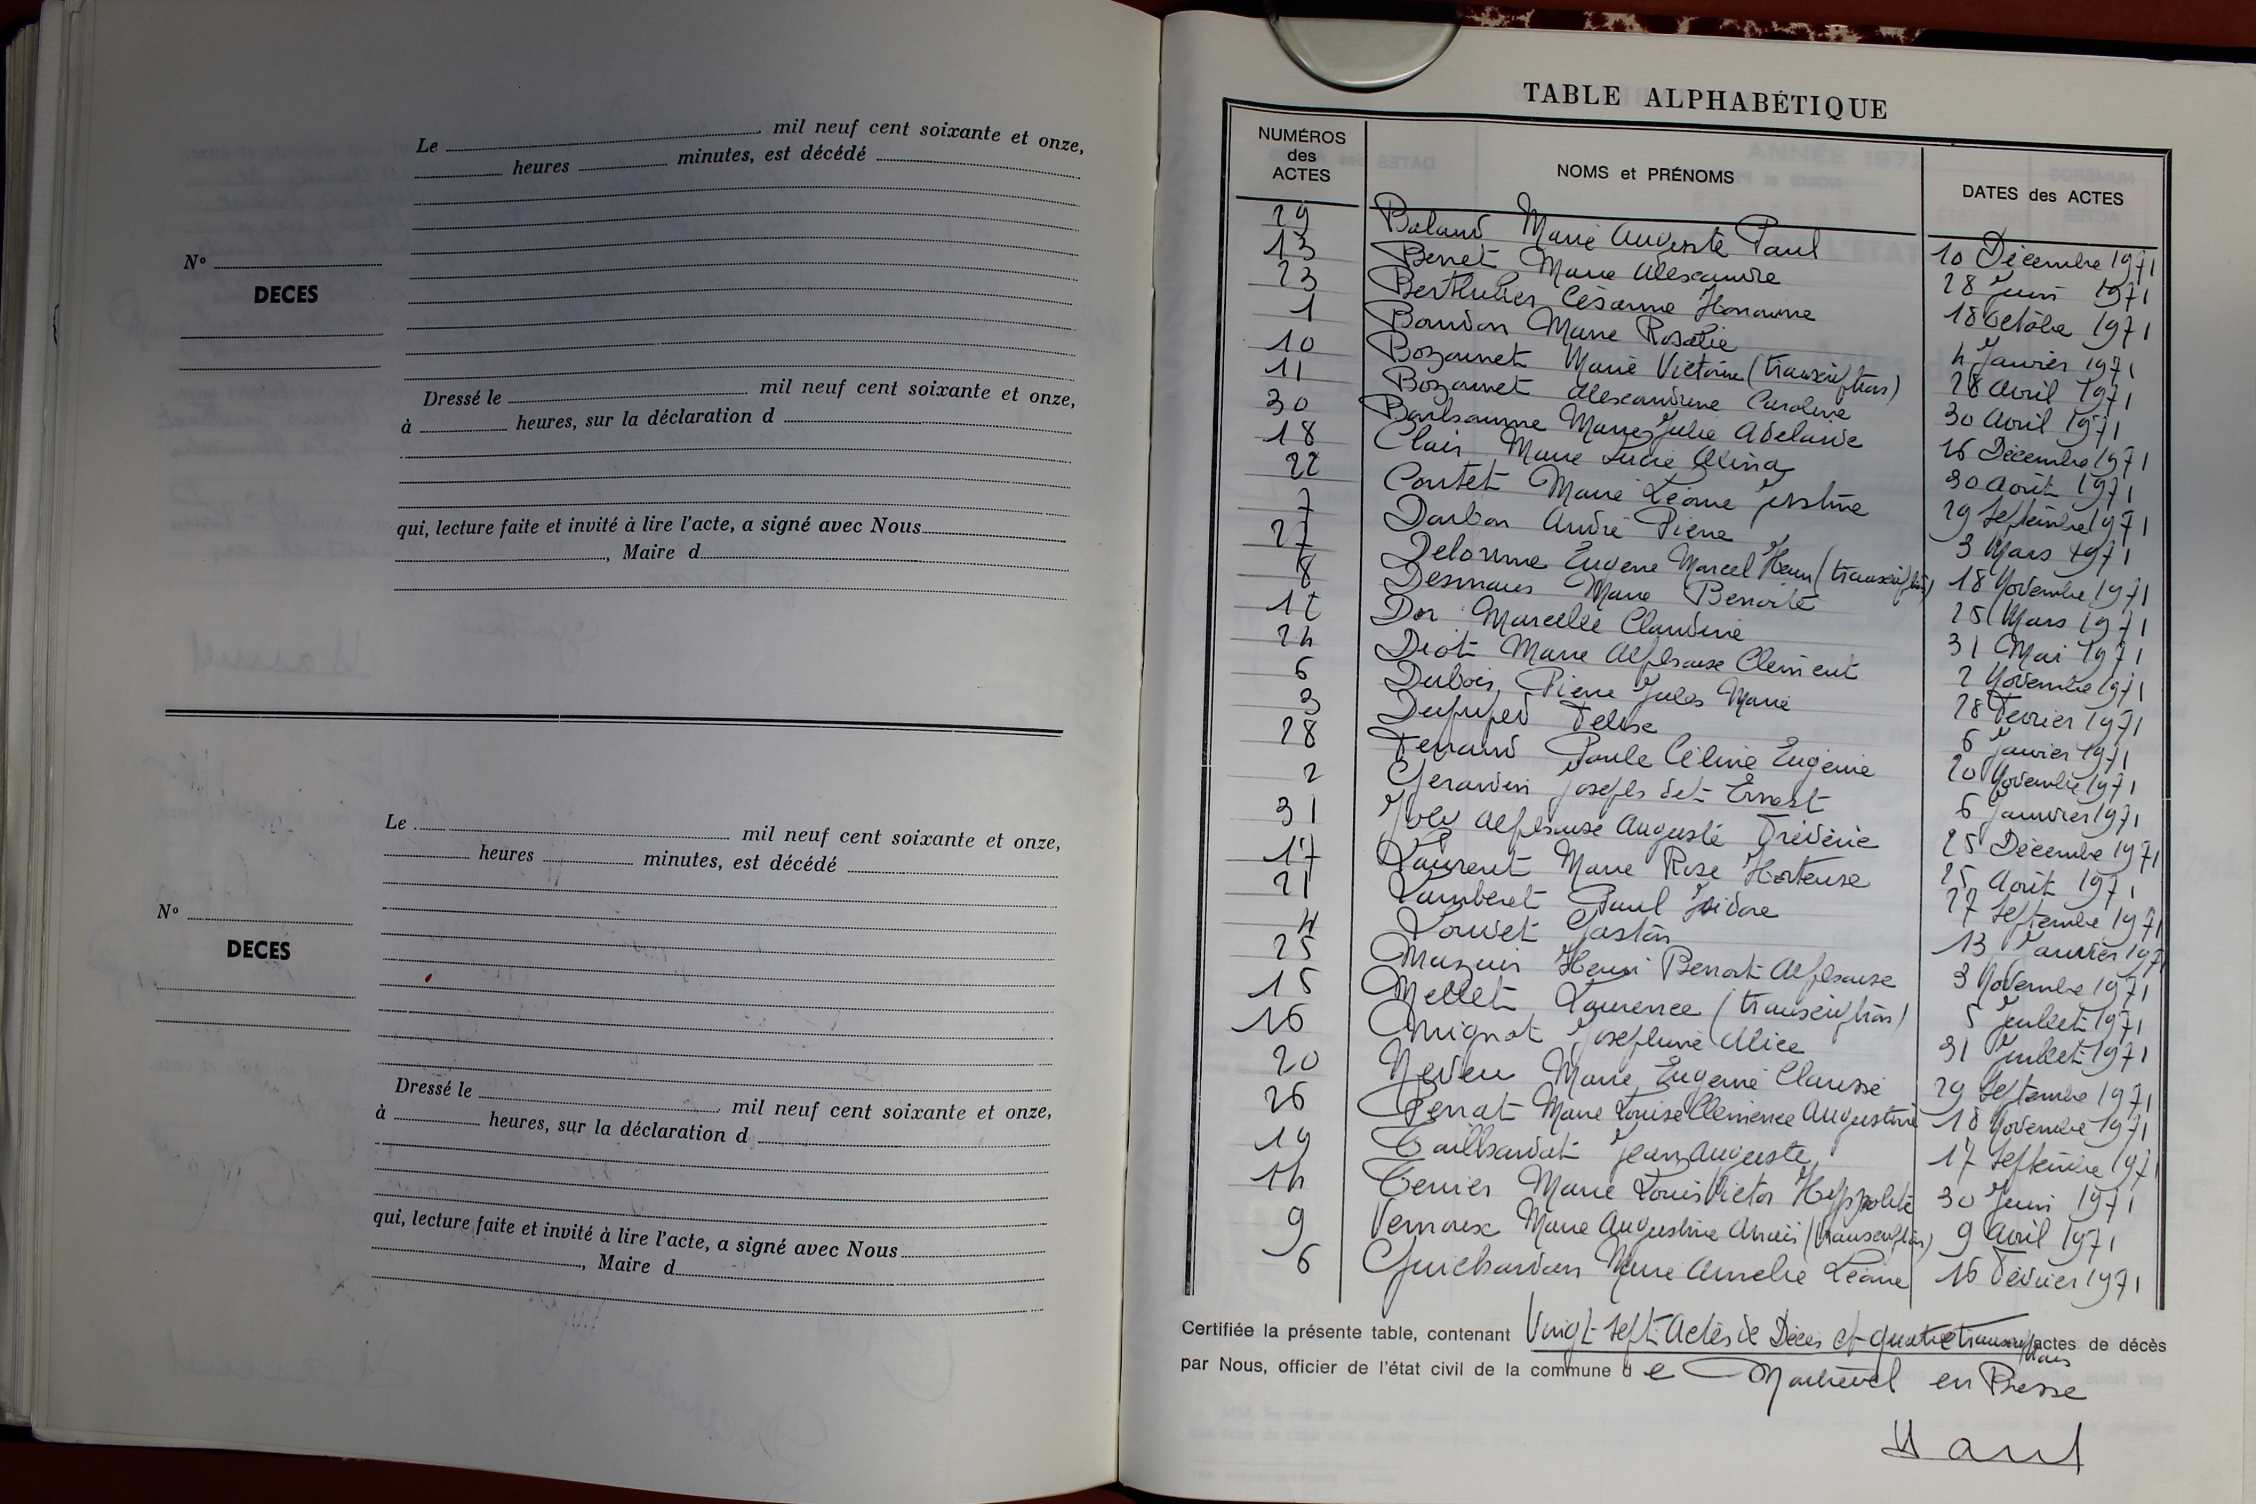 Le mil neuf cent soixante et onze,
heures minutes, est décédé
N°
DECES
Dressé le mil neuf cent soixante et onze,
à heures, sur la déclaration d
qui, lecture faite et invité à lire l'acte, a signé avec Nous
, Maire d
Le mil neuf cent soixante et onze,
heures minutes, est décédé
N°
DECES
Dressé le mil neuf cent soixante et onze,
à heures, sur la déclaration d
qui, lecture faite et invité à lire l'acte, a signé avec Nous
, Maire d
TABLE ALPHABÉTIQUE
NUMÉROS des ACTES NOMS et PRÉNOMS DATES des ACTES
29 Baland Marie Auguste Paul 10 Décembre 1971
13 Berret Marie Alexandre 28 Juin 1971
23 Berthelier Césarine Honorine 18 Octobre 1971
1 Bourdon Marie Rosalie 4 Janvier 1971
10 Bozonnet Marie Victorine (transcription) 28 Avril 1971
11 Bozonnet Alexandrine Caroline 30 Avril 1971
30 Marie Julie Adelaide 16 Décembre 1971
18 Clair Marie Lucie Alina 30 Août 1971
22 Contet Marie Léonie Justine 29 Septembre 1971
7 Darbon André Pierre 3 Mars 1971
27 Delorme Eugene Marcel Henri (transcription) 18 Novembre 1971
8 Desmaris Marie Benoite 25 Mars 1971
12 Dor Marcelle Claudine 31 Mai 1971
24 Diot Marie Alphonse Clément 2 Novembre 1971
6 Dubois Pierre Jules Marie 28 Février 1971
3 Dupuped Felise 6 Janvier 1971
28 Ferrand Paule Céline Eugénie 20 Novembre 1971
2 Gerardin Joseph dit Ernest 6 Janvier 1971
31 Joly Alphonse Auguste Fréderic 25 Décembre 1971
17 Laurent Marie Rose Hortense 25 Août 1971
21 Lamberet Paul Isidore 27 Septembre 1971
4 Louvet Gaston 13 Janvier 1971
25 Mazuir Henri Benoit Alphonse 3 Novembre 1971
15 Mellet Laurence (transcription) 5 Juillet 1971
16 Mignot Josephine Alice 31 Juillet 1971
20 Neveu Marie Eugenie Clausse 29 Septembre 1971
26 Perrat Marie Louise Clemence Augustine 18 Novembre 1971
19 Taillhardat Jean Auguste 17 Septembre 1971
14 Terrier Marie Louis Victor Hyppolite 30 Juin 1971
9 Vernoux Marie Augustine Anaïs (transcription) 9 Avril 1971
6 Guichardan Marie Amelie Léonie 16 Février 1971
Certifiée la présente table, contenant Vingt sept Actes de Décès et quatre transcriptions actes de décès
par Nous, officier de l'état civil de la commune d e Montrevel en Bresse